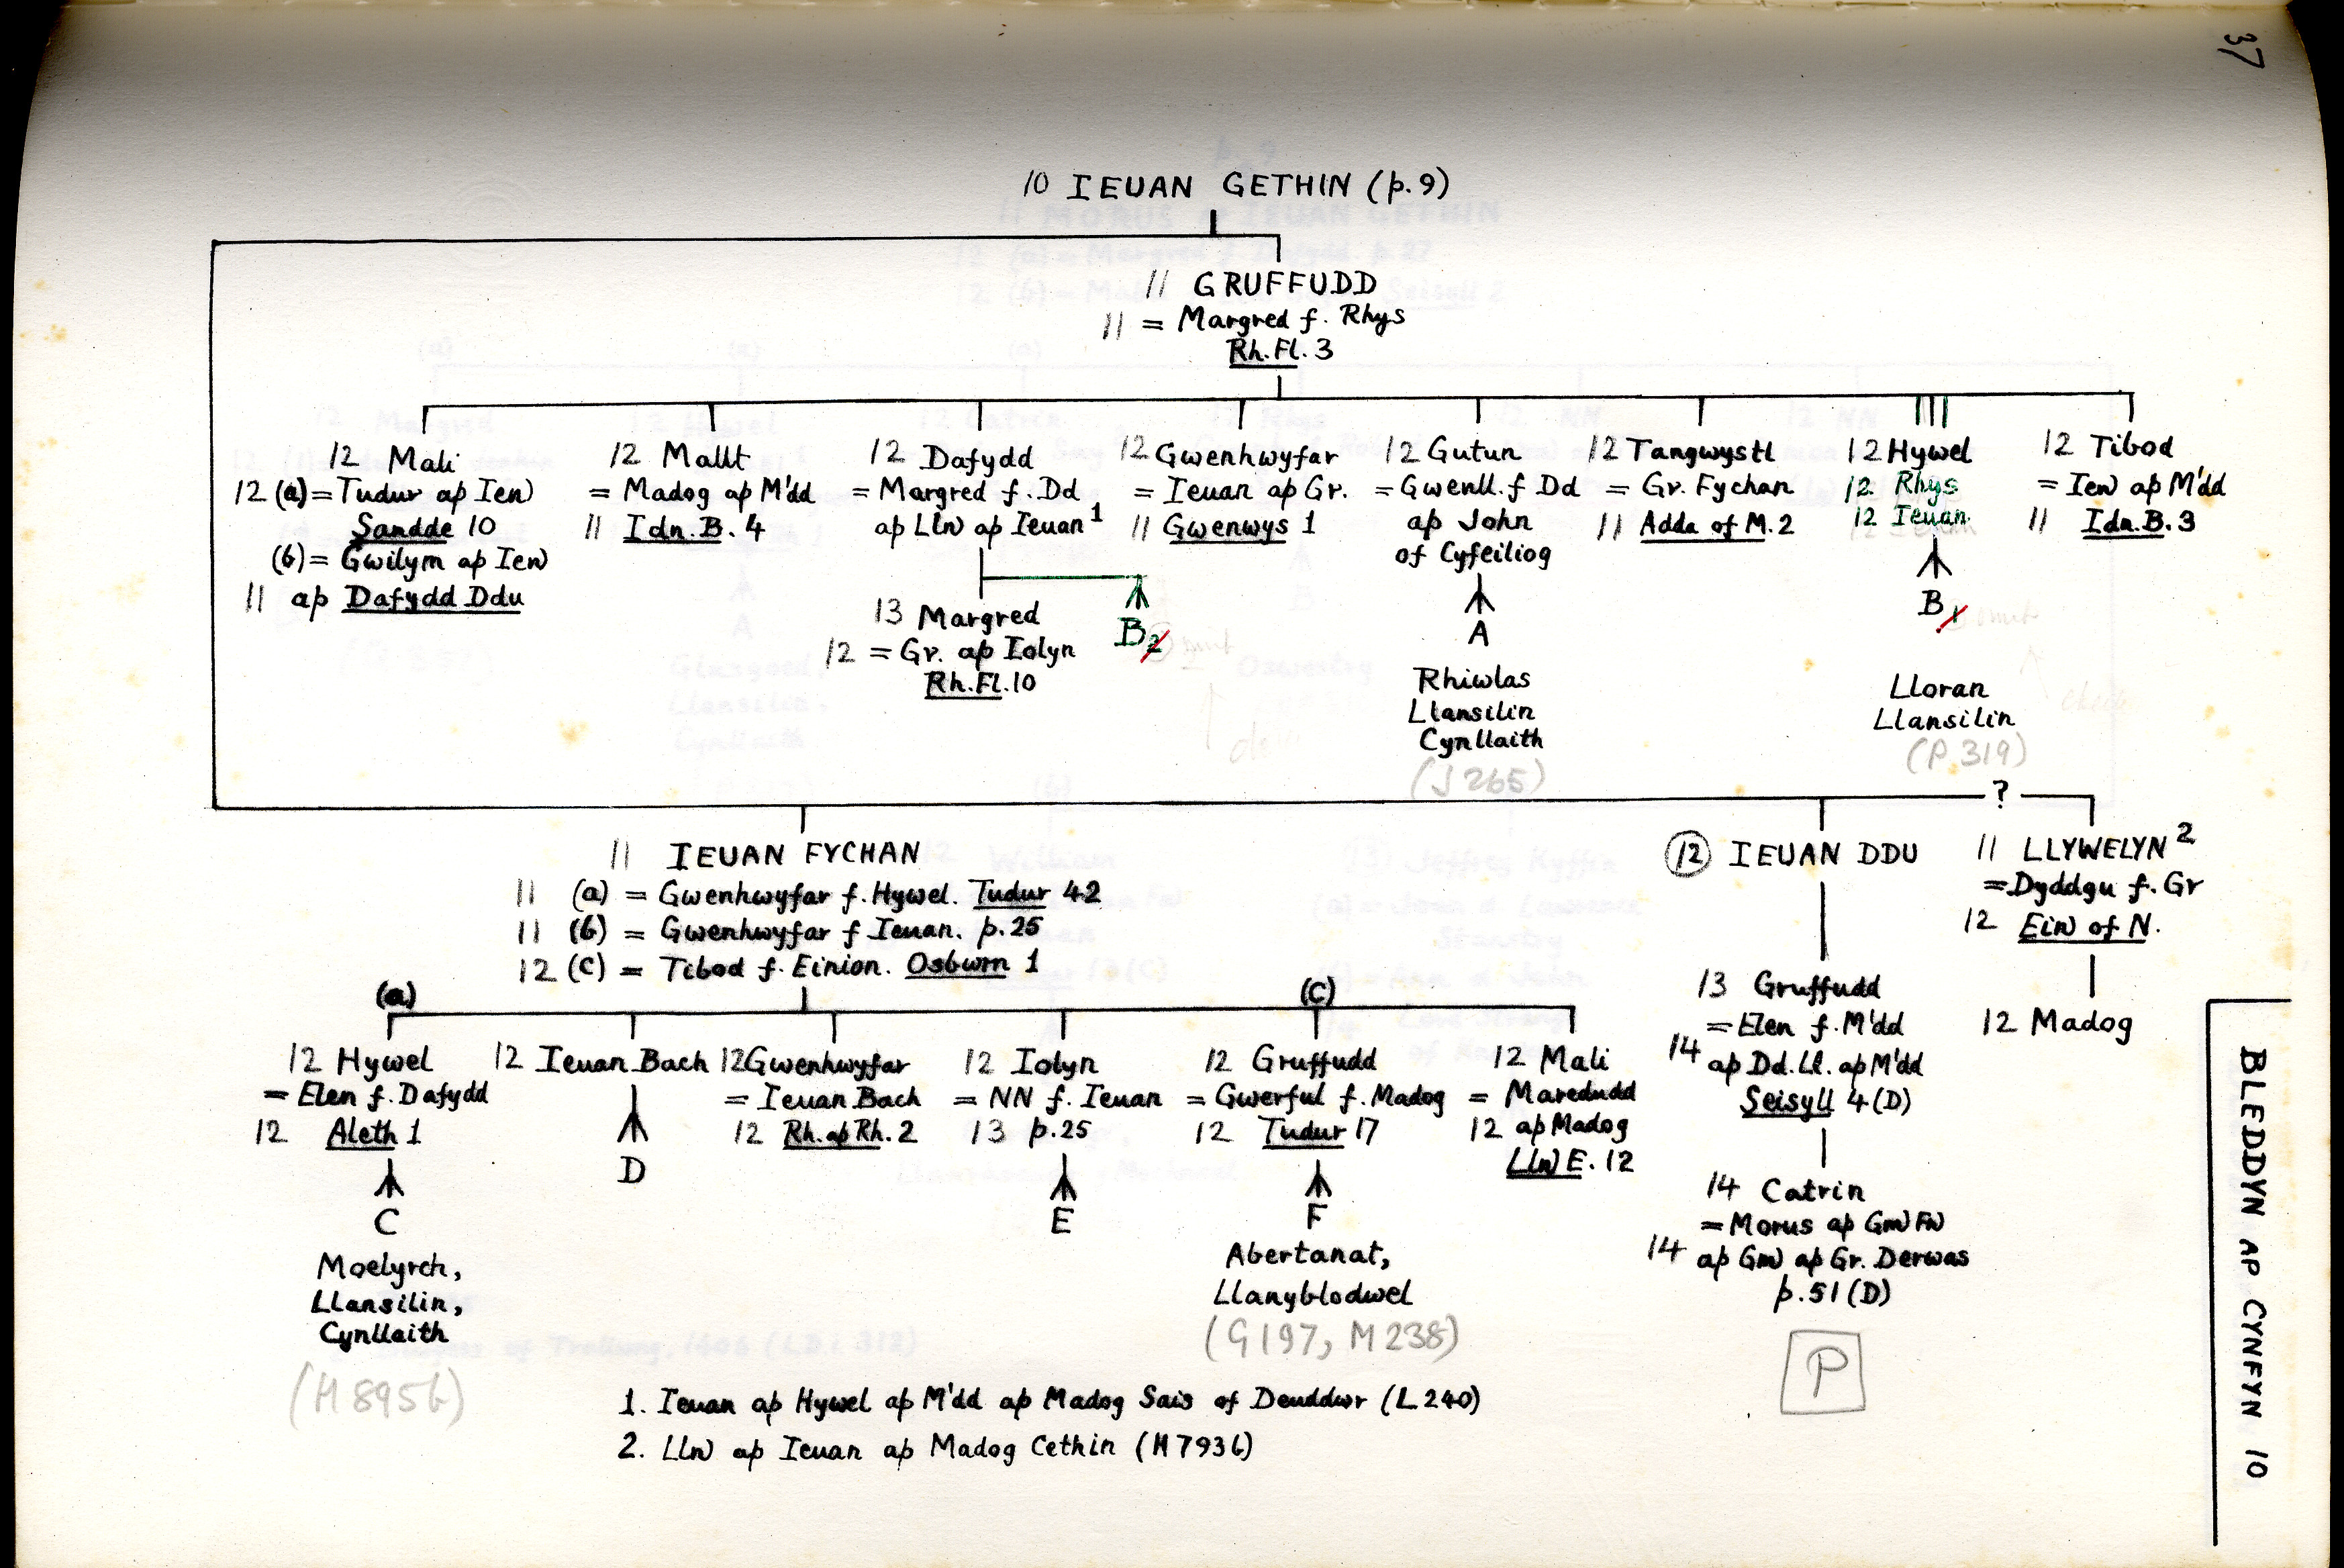 37
10 IEUAN GETHIN (p.9)
11 GRUFFUDD
11 = Margred f. Rhys
Rh.Fl. 3
12 Mali
12 (a)=Tudur ap Ieu)
Sandde 10
(b)= Gwilym ap Ieu)
11 ap Dafydd Ddu
12 Mallt
= Madog ap M'dd
11 Idn.B. 4
12 Dafydd
= Margred f. Dd
ap Lln ap Ieuan 1
13 Margred
12 = Gr. ap Iolyn
Rh.Fl.10
B2
12 Gwenhwyfar
= Ieuan ap Gr.
11 Gwenwys 1
12 Gutun
=Gwenll. f Dd
ap John
of Cyfeiliog
A
Rhiwlas
Llansilin
Cynllaith
(J 265)
12 Tangwystl
= Gr. Fychan
11 Adda of M.2
12 Hywel
12 Rhys
12 Ieuan
B1
Lloran
Llansilin
(P.319)
12 Tibod
= Ieu) ap M'dd
11 Idn.B.3
?
11 IEUAN FYCHAN
11 (a) = Gwenhwyfar f. Hywel. Tudur 42
11 (b) = Gwenhwyfar f Ieuan. p.25
12 (C) = Tibod f. Einion. Osbwrn 1
12 IEUAN DDU
11 LLYWELYN 2
=Dyddgu f. Gr
12 Ein) of N.
12 Madog
(a)
(C)
12 Hywel
= Elen f. Dafydd
12 Aleth 1
C
Moelyrch,
Llansilin,
Cynllaith
(H 895b)
12 Ieuan Bach
D
12 Gwenhwyfar
= Ieuan Bach
12 Rh.apRh. 2
12 Iolyn
= NN f. Ieuan
13 p.25
E
12 Gruffudd
= Gwerful f. Madog
12 Tudur 17
F
Abertanat,
Llanyblodwel
(G 197, M 238)
12 Mali
= Maredudd
12 ap Madog
Lln) E. 12
13 Gruffudd
= Elen f. M'dd
14 ap Dd. Ll. ap M'dd
Seisyll 4 (D)
14 Catrin
= Morus ap Gm) Fn)
14 ap Gm) ap Gr. Derwas
p.51 (D)
P
1. Ieuan ap Hywel ap M'dd ap Madog Sais of Deuddwr (L 240)
2. Lln) ap Ieuan ap Madog Cethin (H 793b)
BLEDDYN AP CYNFYN 10